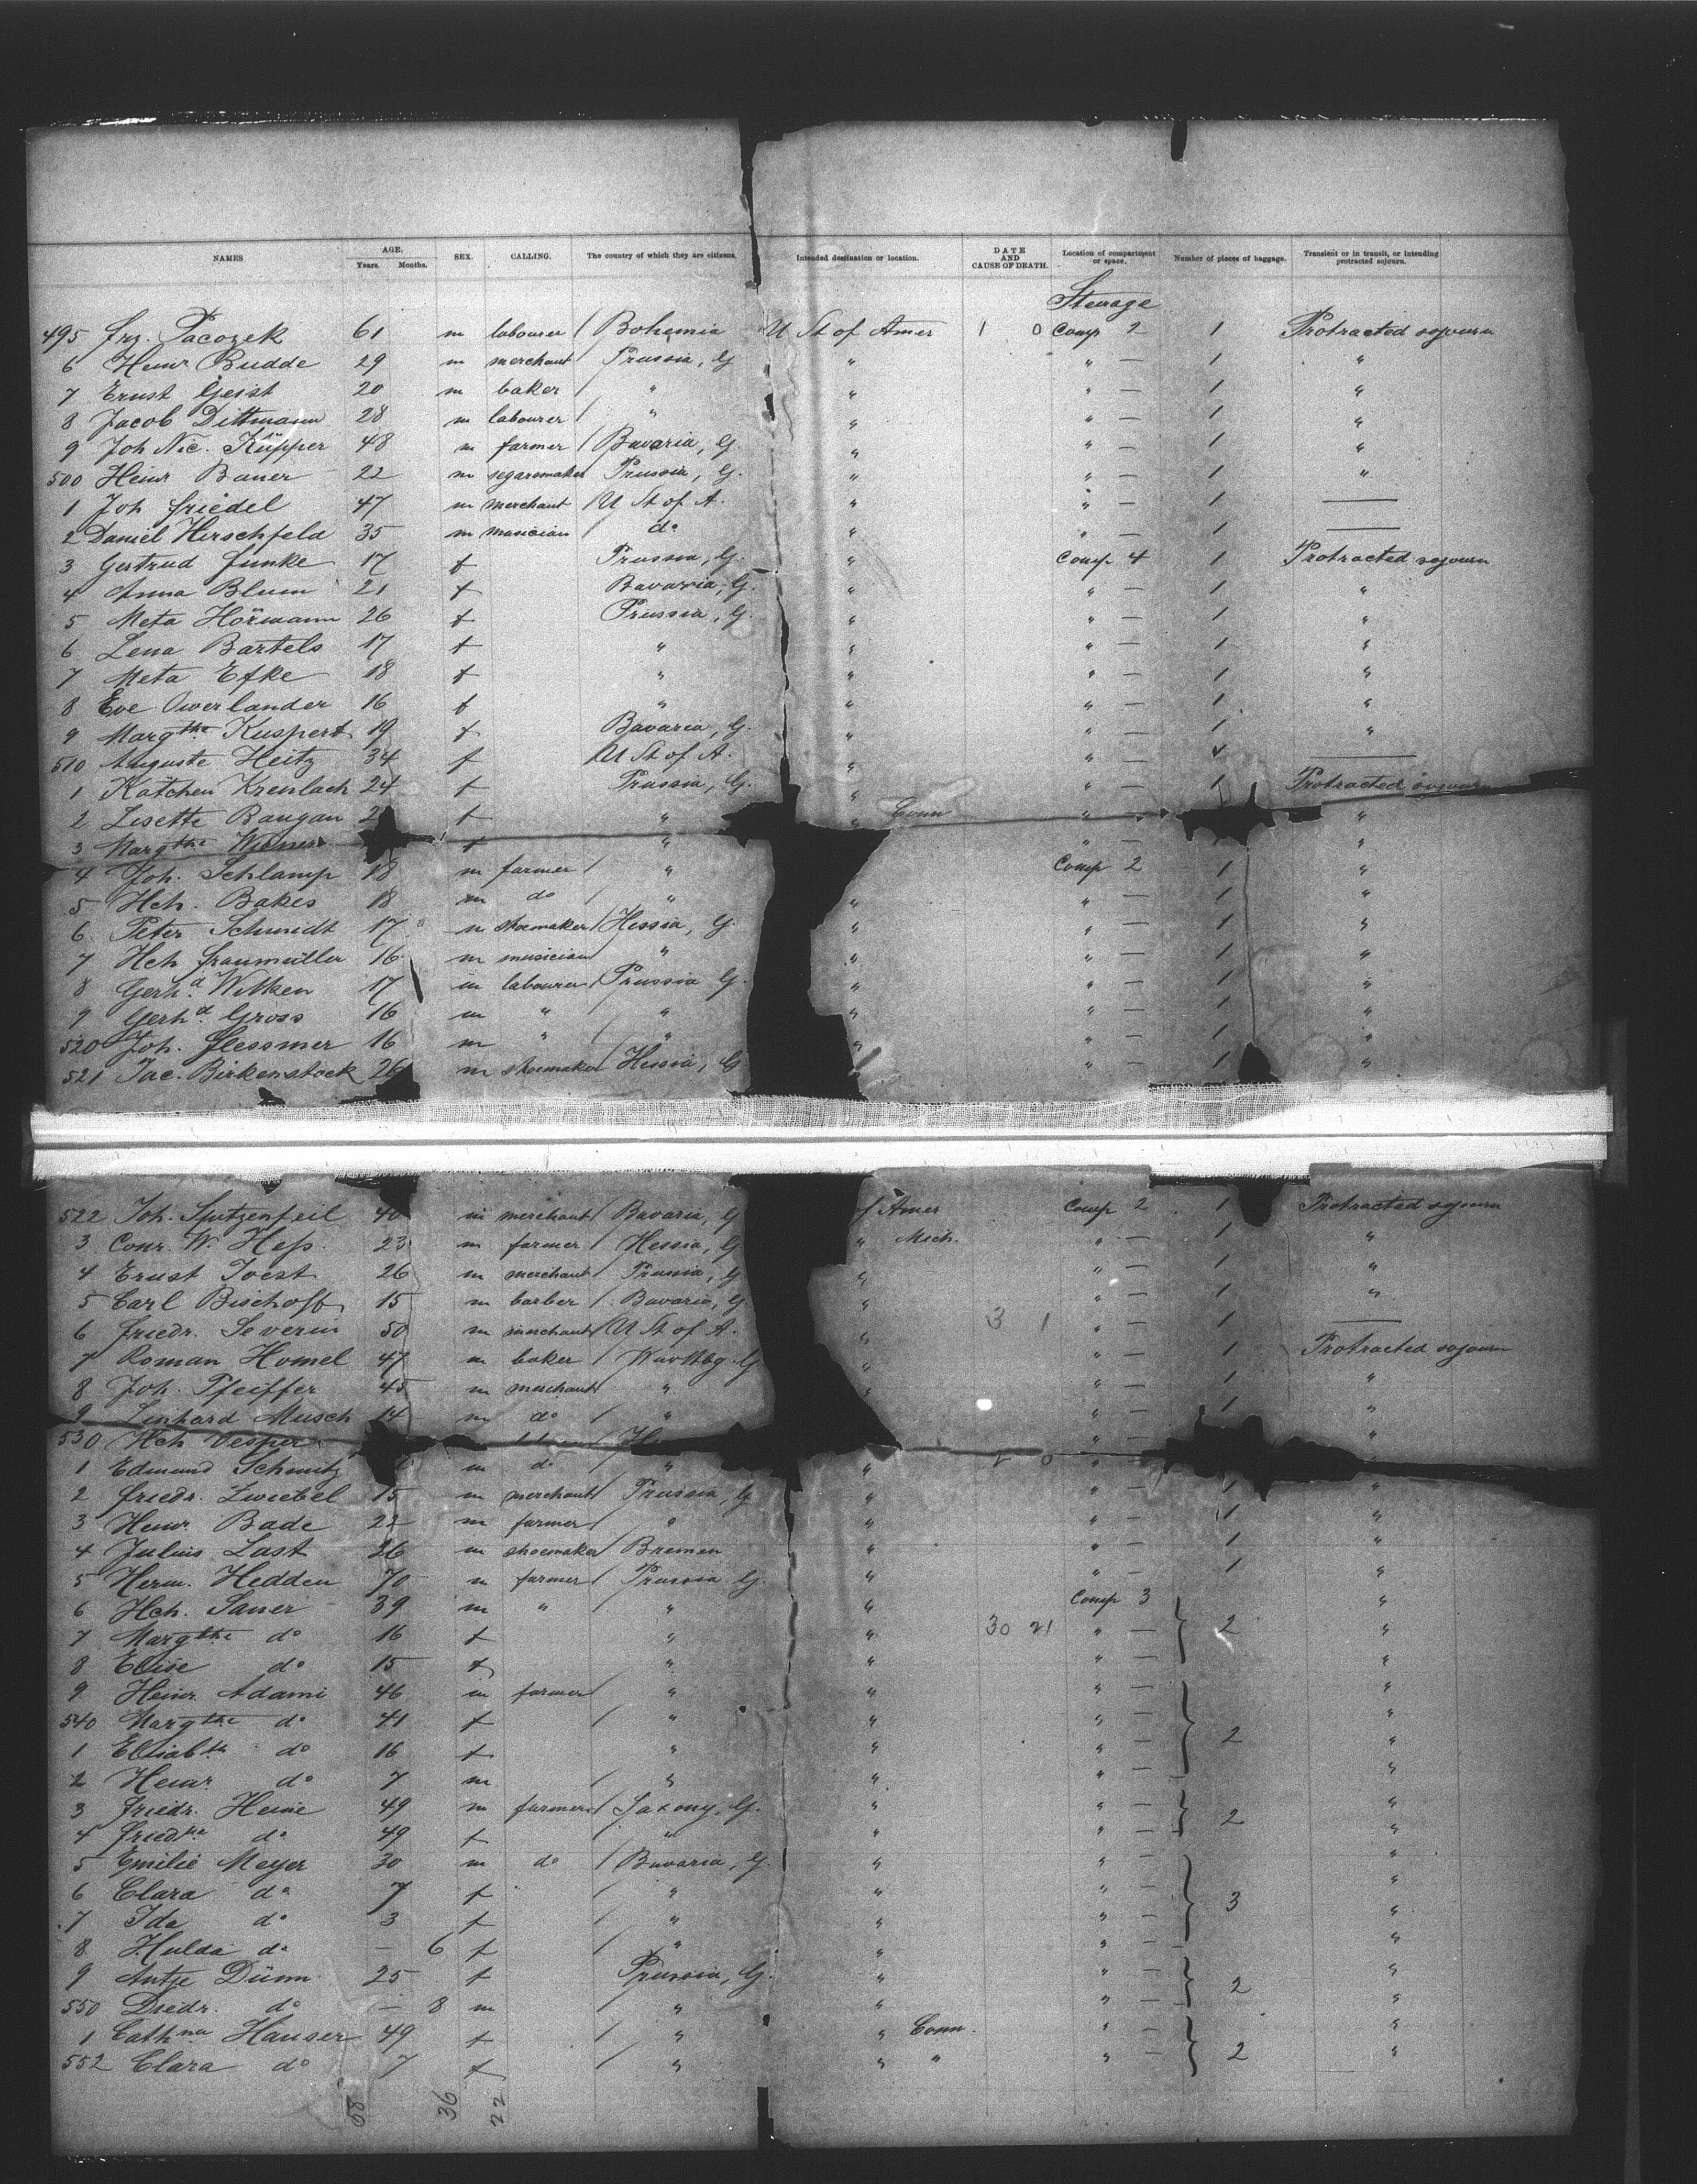 NAMES AGE. Years. Months. SEX. CALLING. The country of which they are citizens. Intended destination or location. DATE AND CAUSE OF DEATH. Location of compartment or space. Number of pieces of baggage. Transient or in transit, or intending protracted sojourn.
Steerage
495 Frz. Pacozek 61 m labourer / Bohemia U St of Amer 1 0 Comp 2 1 Protracted sojourn
6 Heinr. Budde 29 m merchant Prussia, G " " — 1 "
7 Ernst Geist 20 m baker / " " " — 1 "
8 Jacob Dittmann 28 m labourer / " " " — 1 "
9 Joh Nic. Küpper 48 m farmer / Bavaria, G. " " — 1 "
500 Heinr Bauer 22 m segarsmaker Prussia, G. " " — 1 "
1 Joh Friedel 47 m merchant / U St of A. " " — 1 —
2 Daniel Herschfeld 35 m musician / do " " — 1 —
3 Gertrud Funke 17 f Prussia, G. " Comp 4 1 Protracted sojourn
4 Anna Blum 21 f Bavaria, G. " " — 1 "
5 Meta Hörmann 26 f Prussia, G. " " — 1 "
6 Lena Bartels 17 f " " " — 1 "
7 Meta Efke 18 f " " " — 1 "
8 Eve Owerlander 16 f " " " — 1 "
9 Margthe Kuspert 19 f Bavaria, G. " " — 1 "
510 Auguste Heitz 34 f / U St of A. " " — 4 —
1 Kätchen Krenlach 24 f Prussia, G. " " — 1 Protracted sojourn
2 Lisette Baugan 2 f " " Conn " — "
3 Margthe f " "
4 Joh. Schlamp 18 m farmer / " Comp 2 1 "
5 Hch. Bakes 18 m do / " " " — 1 "
6 Peter Schmidt 17 m shoemaker / Hessia, G. " " — 1 "
7 Hch Fraumüller 16 m musician " " " — 1 "
8 Gerhd. Witken 17 m labourer / Prussia G. " " — 1 "
9 Gerhd. Gross 16 m " / " " " — 1 "
520 Joh. Flessmer 16 m " / " " " — 1 "
521 Jac. Birkenstock 26 m shoemaker Hessia, G " " — 1 "
522 Joh. Spitzenfeil 40 m merchant / Bavaria, G of Amer Comp 2 1 Protracted sojourn
3 Conr. W. Hess 23 m farmer / Hessia, G " Mich. " — 1 "
4 Ernst Joest 26 m merchant / Prussia, G " " — 1 "
5 Carl Bischoff 15 m barber / Bavaria, G. " " — 1 "
6 Friedr. Severin 50 m merchant / U St of A. " 3 1 " — 1 —
7 Roman Homel 47 m baker / Wurttbg. G " " — 1 Protracted sojourn
8 Joh. Pfeiffer 45 m merchant / " " " — 1 "
9 Linhard Musch 14 m do / " " — 1 "
530 Hch Vesper " — "
1 Edmund Schmitz m do / " " " "
2 Friedr. Zwiebel 15 m merchant / Prussia, G " " — 1 "
3 Heinr. Bade 22 m farmer / " " " — 1 "
4 Julius Last 26 m shoemaker / Bremen " " — 1 "
5 Herm. Hedden 70 m farmer / Prussia G. " " — 1 "
6 Hch. Sauer 39 m " / " " Comp 3 "
7 Margthe do 16 f " " 30 21 " — 2 "
8 Elise do 15 f " " " — "
9 Heinr. Adami 46 m farmer / " " " — "
540 Margthe do 41 f / " " " — "
1 Elisabth do 16 f " " " — 2 "
2 Heinr. do 7 m / " " " — "
3 Friedr. Heine 49 m farmer / Saxony, G. " " — 2 "
4 Friedke do 49 f / " " " — "
5 Emilie Meyer 30 m do / Bavaria, G. " " — "
6 Clara do 7 f / " " " — "
7 Ida do 3 f / " " " — 3 "
8 Hulda do — 6 f / " " " — "
9 Antje Dünn 25 f Prussia, G. " " — 2 "
550 Diedr. do — 8 m / " " " — "
1 Cathna Hauser 49 f / " " Conn. " — "
552 Clara do 7 f / " " " " — 2 "
58 36 22